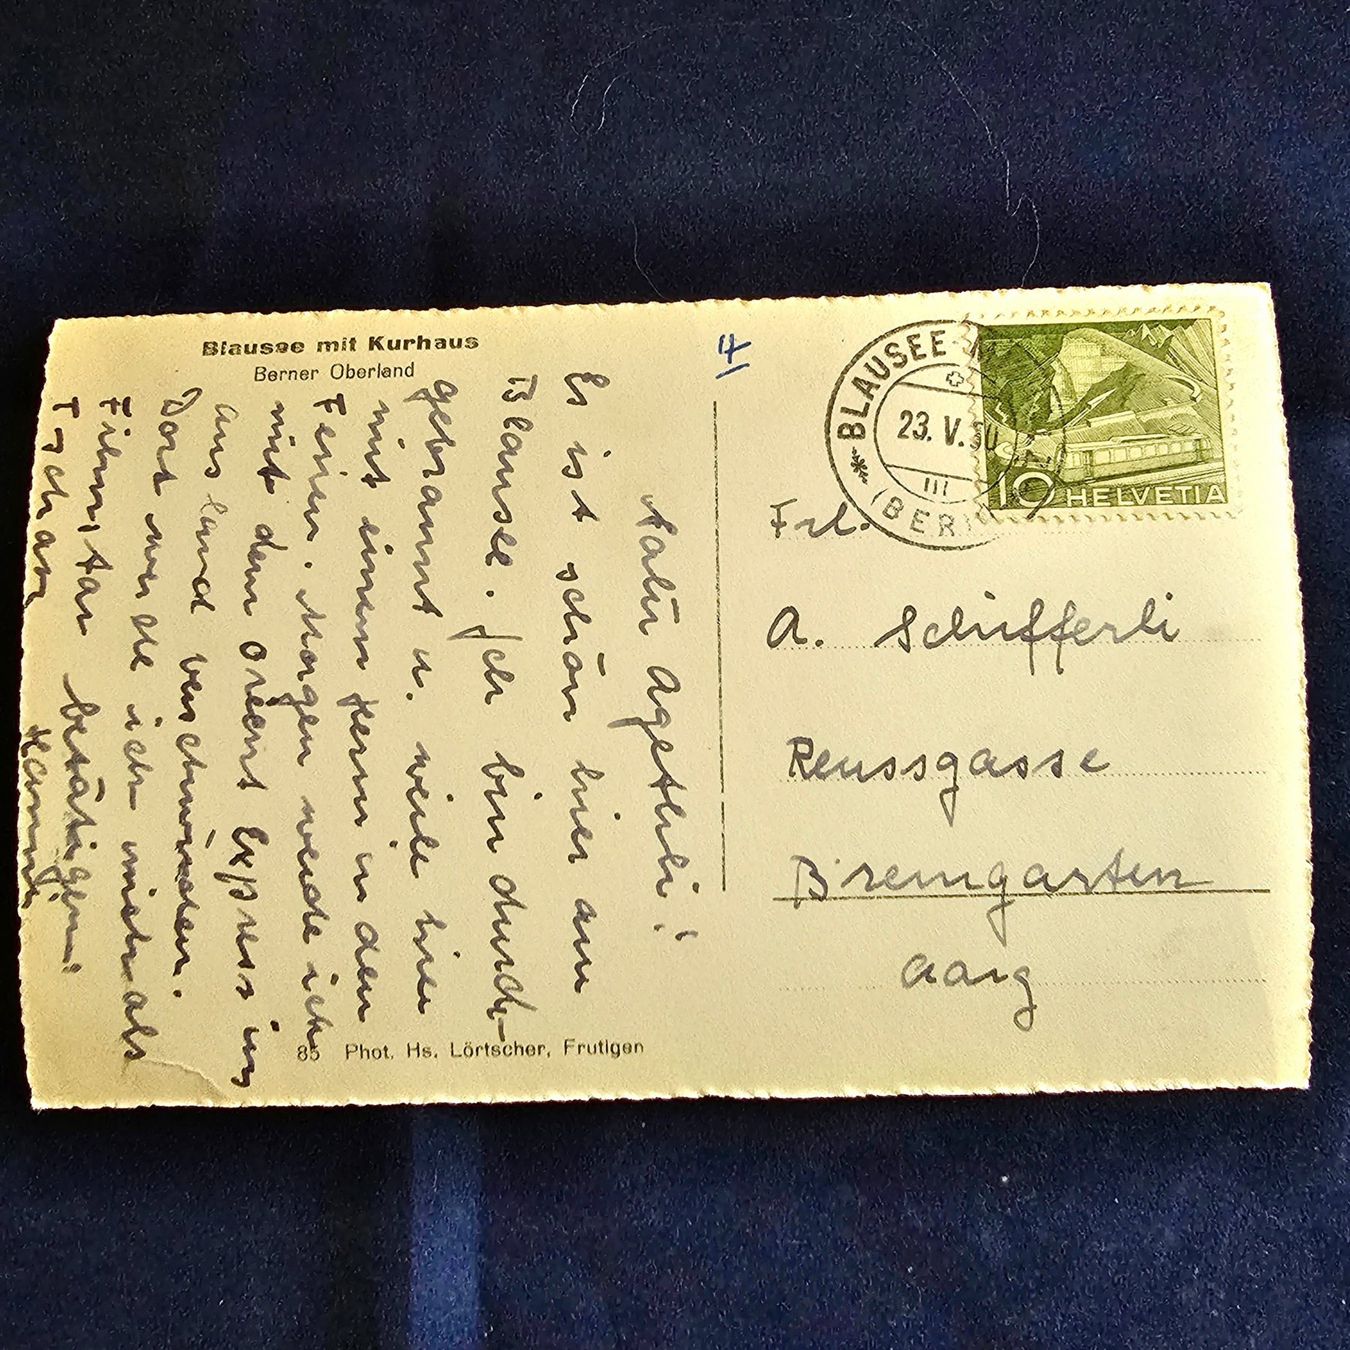 Blausee mit Kurhaus
Berner Oberland
4
Salü Agethli!
Es ist schön hier am
Blausee. Ich bin durch-
gebrannt u. weile hier
mit einem Herrn in den
Ferien. Morgen werde ich
mit dem Orient Express ins
Ausland verschwinden.
Dort werde ich mich als
Filmstar betätigen!
Tschau
Hanny
85 Phot. Hs. Lörtscher, Frutigen
BLAUSEE
23. V. 50
III
(BERN
10 HELVETIA
Frl.
A. Schifferli
Reussgasse
Bremgarten
Aarg